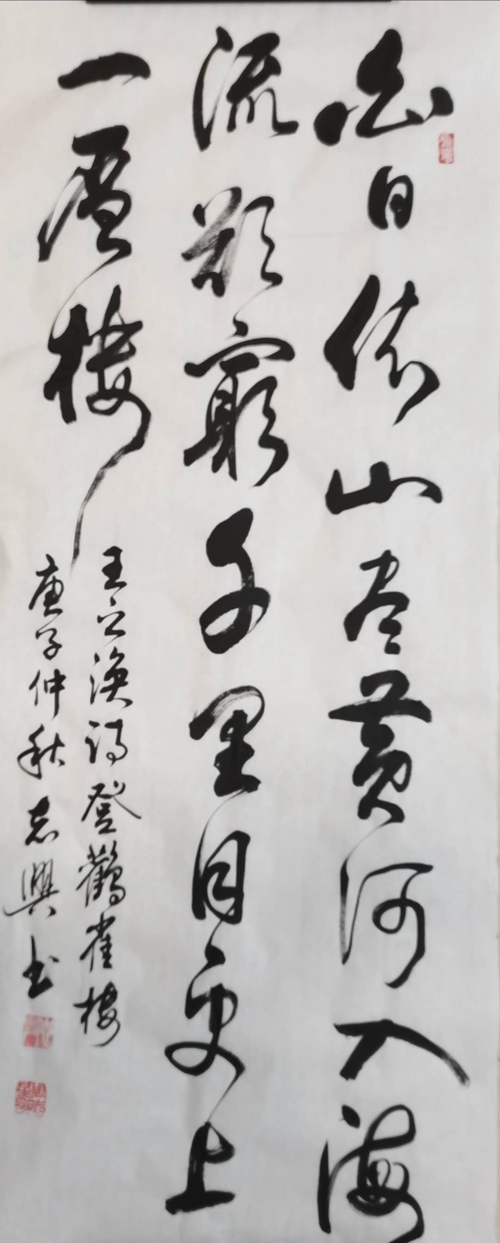 白日依山尽黄河入海
流欲穷千里目更上
一层楼
王之涣诗登鹳雀楼
庚子仲秋志兴书